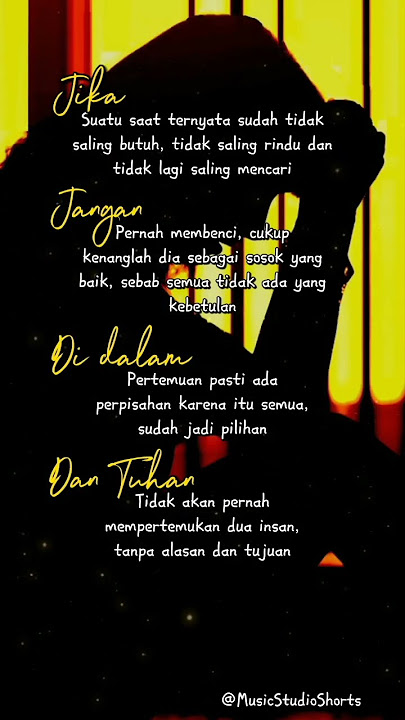 Jika
Suatu saat ternyata sudah tidak
saling butuh, tidak saling rindu dan
tidak lagi saling mencari
Jangan
Pernah membenci, cukup
kenanglah dia sebagai sosok yang
baik, sebab semua tidak ada yang
kebetulan
Di dalam
Pertemuan pasti ada
perpisahan karena itu semua,
sudah jadi pilihan
Dan Tuhan
Tidak akan pernah
mempertemukan dua insan,
tanpa alasan dan tujuan
@MusicStudioShorts